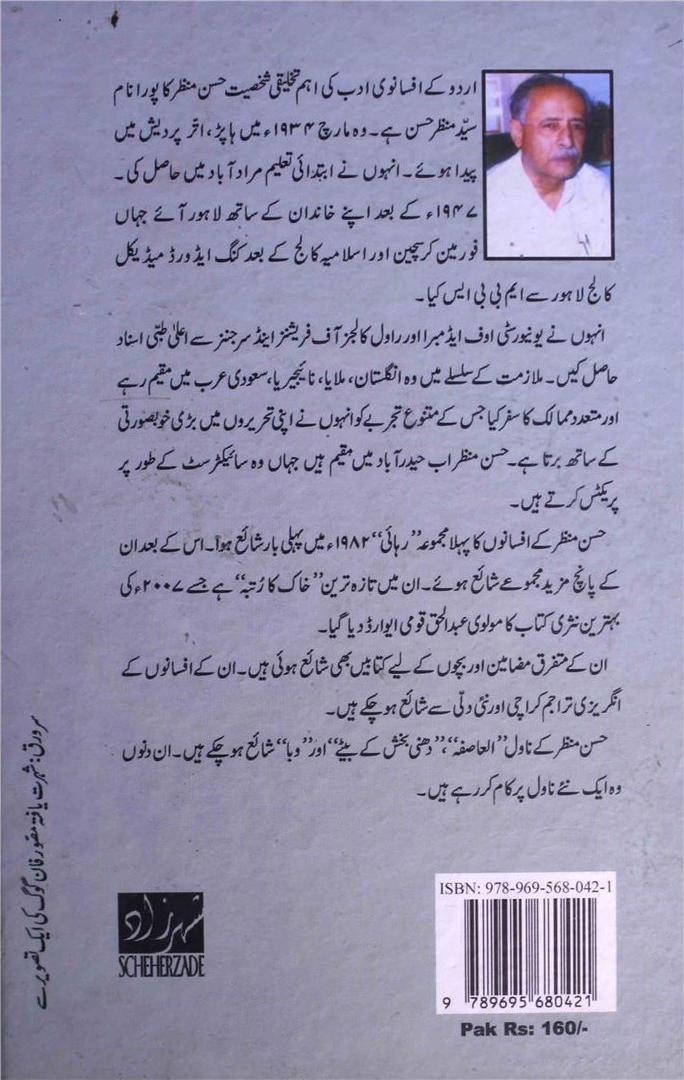 اردو کے افسانوی ادب کی اہم تخلیقی شخصیت حسن منظر کا پورا نام
سیّد منظر حسن ہے۔ وہ مارچ ۱۹۳۴ء میں ہاپڑ، اتر پردیش میں
پیدا ہوئے۔ انہوں نے ابتدائی تعلیم مراد آباد میں حاصل کی۔
۱۹۴۷ء کے بعد اپنے خاندان کے ساتھ لاہور آئے جہاں
فورمین کرسچین اور اسلامیہ کالج کے بعد کنگ ایڈورڈ میڈیکل
کالج لاہور سے ایم بی بی ایس کیا۔
انہوں نے یونیورسٹی اوف ایڈمبرا اور راول کالجز آف فزیشنز اینڈ سرجنز سے اعلیٰ طبّی اسناد
حاصل کیں۔ ملازمت کے سلسلے میں وہ انگلستان، ملایا، نائیجیریا، سعودی عرب میں مقیم رہے
اور متعدد ممالک کا سفر کیا جس کے متنوع تجربے کو انہوں نے اپنی تحریروں میں بڑی خوبصورتی
کے ساتھ برتا ہے۔ حسن منظر اب حیدرآباد میں مقیم ہیں جہاں وہ سائیکٹرسٹ کے طور پر
پریکٹس کرتے ہیں۔
حسن منظر کے افسانوں کا پہلا مجموعہ ”رہائی“ ۱۹۸۲ء میں پہلی بار شائع ہوا۔ اس کے بعد ان
کے پانچ مزید مجموعے شائع ہوئے۔ ان میں تازہ ترین ”خاک کا رُتبہ“ ہے جسے ۲۰۰۷ء کی
بہترین نثری کتاب کا مولوی عبدالحق قومی ایوارڈ دیا گیا۔
ان کے متفرق مضامین اور بچوں کے لیے کتابیں بھی شائع ہوئی ہیں۔ ان کے افسانوں کے
انگریزی تراجم کراچی اور نئی دلّی سے شائع ہو چکے ہیں۔
حسن منظر کے ناول ”العاصفہ“، ”دھنی بخش کے بیٹے“ اور ”وبا“ شائع ہو چکے ہیں۔ ان دنوں
وہ ایک نئے ناول پر کام کر رہے ہیں۔
سرورق: شہرت یافتہ مصور فان گوگ کی ایک تصویر سے
شہرزاد
SCHEHERZADE
ISBN: 978-969-568-042-1
9 789695 680421
Pak Rs: 160/-